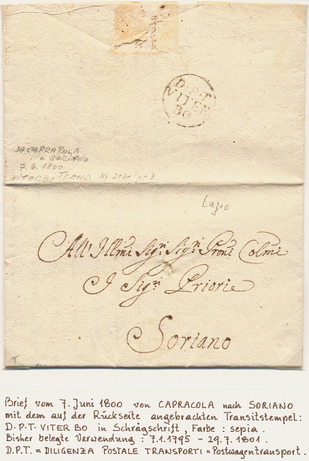 D.P.T.
VITER
BO
DA CAPRAROLA
a SORIANO
7.6.1800
Lazio
All' Illmi Sigri Sigri Proni Colmi
I Sigri Priori
Soriano
Brief vom 7. Juni 1800 von CAPRACOLA nach SORIANO
mit dem auf der Rückseite angebrachten Transitstempel:
D·P·T· VITER BO in Schrägschrift, Farbe : sepia.
Bisher belegte Verwendung : 7.1.1795 - 29.7.1801.
D.P.T. = DILIGENZA POSTALE TRANSPORTI = Postwagentransport.